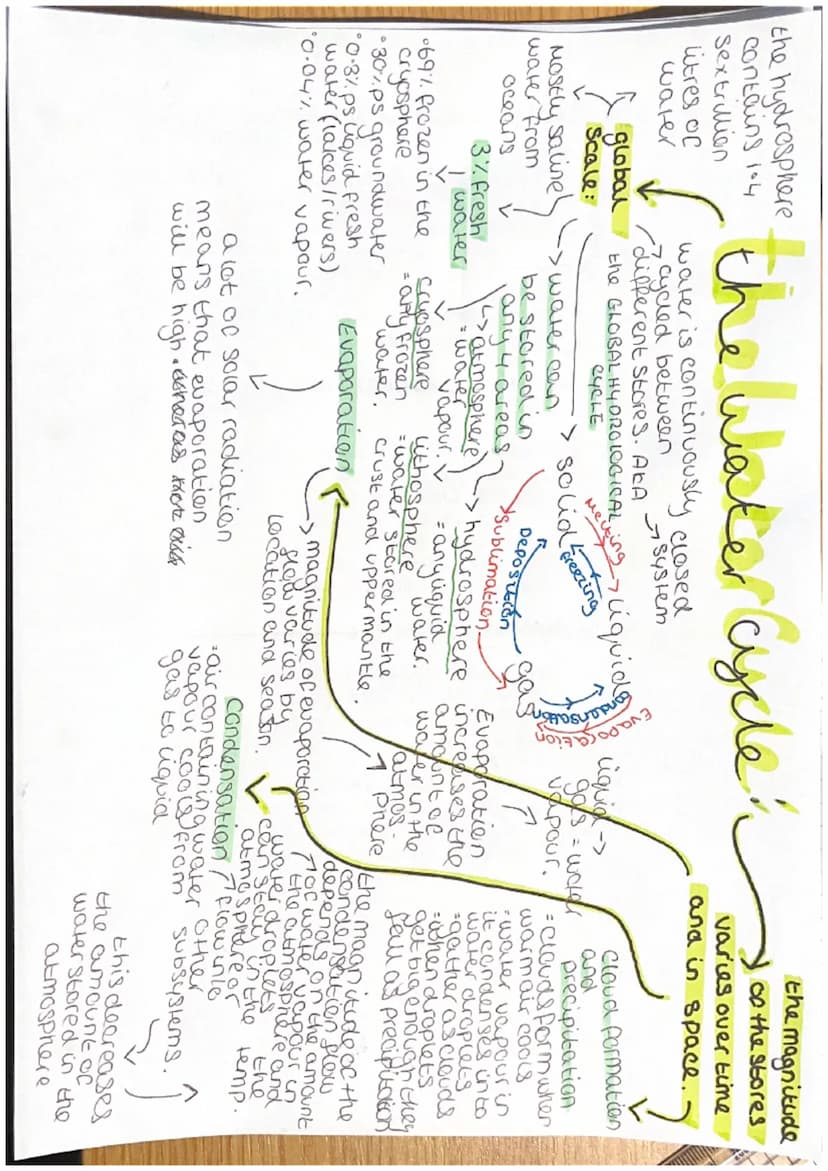 the Water Cycle:
the hydrosphere
contains 1.4
sextrillion
litres of
water
global
scale:
Mostly saline
water from
oceans
3% fresh
water
°69% frozen in the
cryosphere
°30% ps groundwater
°0.3% ps liquid fresh
water (lakes/rivers)
°0.04% water vapour.
water is continuously
cycled between
different stores. AKA
the GLOBAL HYDROLOGICAL
CYCLE
closed
system
water can
be stored in
any 4 areas
atmosphere
= water
vapour.
cryosphere
= any frozen
water.
hydrosphere
= any liquid
water.
lithosphere
= water stored in the
crust and upper mantle.
solid
melting
freezing
liquid
Sublimation
Deposition
gas
condensation
Evaporation
the magnitude
of the stores
varies over time
and in space.
Evaporation
liquid ->
gas = water
vapour.
Evaporation
increases the
amount of
water in the
atmos-
phere
magnitude of evaporation
flow varies by
location and season.
a lot of solar radiation
means that evaporation
will be high.
cloud formation
and
precipitation
= clouds form when
warm air cools
= water vapour in
it condenses in to
water droplets
= gather as clouds
= when droplets
get big enough they
fall as precipitation
Condensation
= air containing water
vapour cools from
gas to liquid
the magnitude of the
condensation flow
depends on the amount
of water vapour in
the atmosphere and
the
temp.
water droplets
can stay in the
atmosphere or
flow into
other
subsystems.
this decreases
the amount of
water stored in the
atmosphere